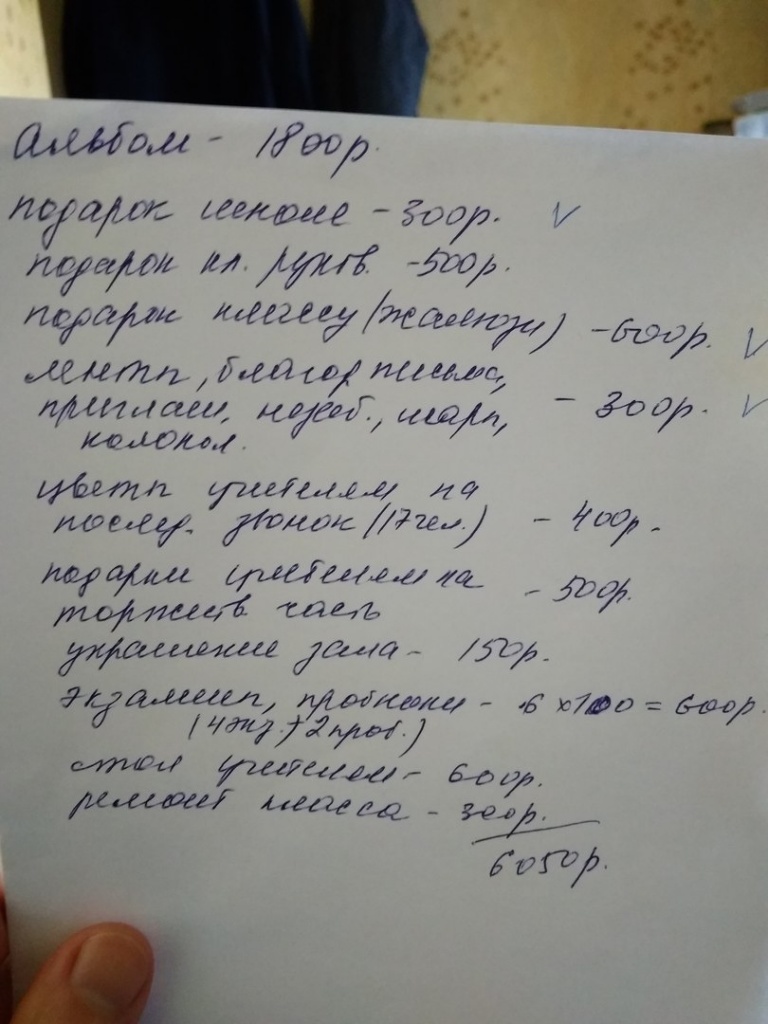 Альбом - 1800р.
подарок школе - 300р. V
подарок кл. рук-в. - 500р.
подарок классу (жалюзи) - 600р. V
ленты, благод. письма,
приглаш., шары, - 300р. V
колокол.
цветы учителям на
послед. звонок (17 чел.) - 400р.
подарки учителям на - 500р.
торжеств. часть
украшение зала - 150р.
экзамены, пробники - 6 х 100 = 600р.
(4 экз. + 2 проб.)
стол учителям - 600р.
ремонт класса - 300р.
6050р.